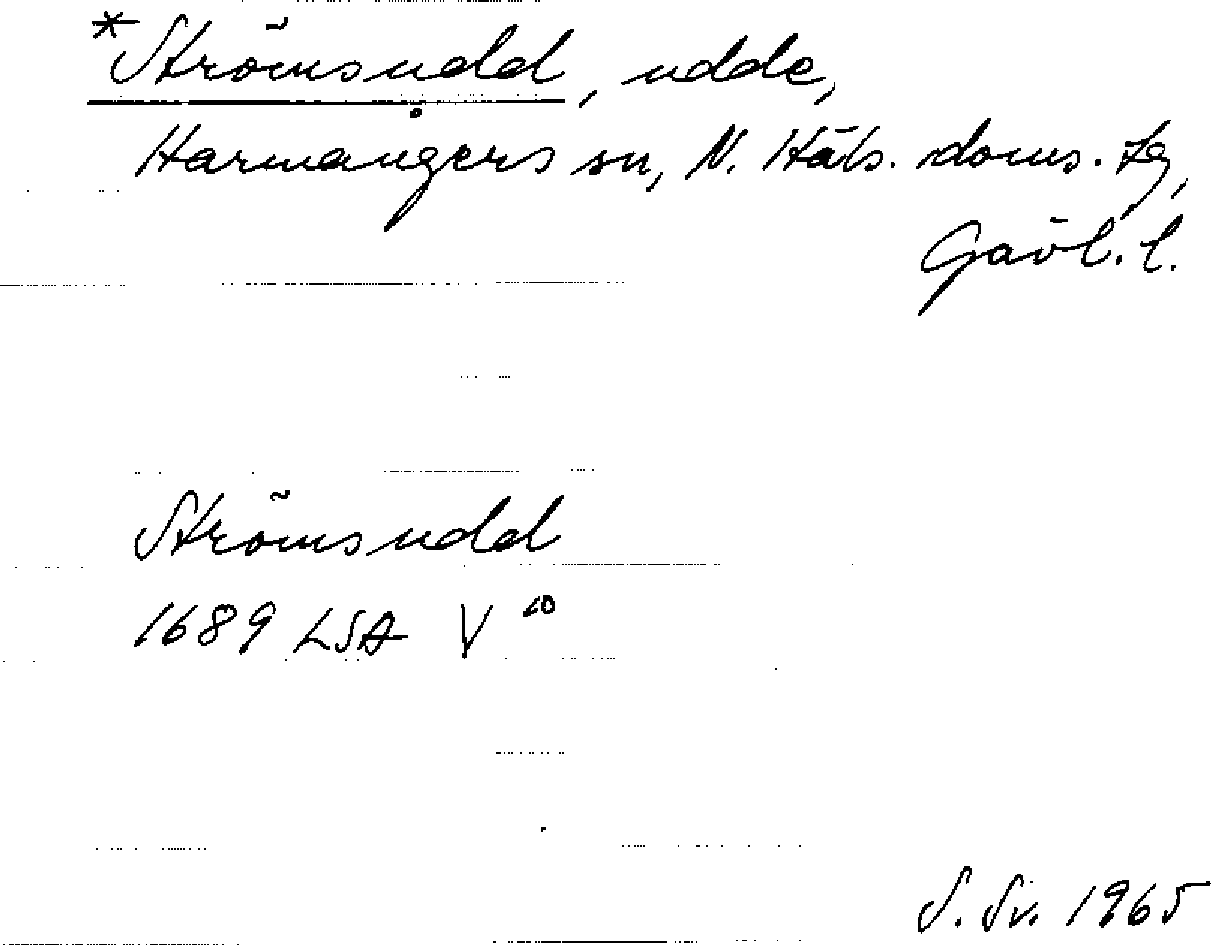 *Strömsudd, udde,
Harmångers sn, N. Häls. doms. tg,
Gävl. l.
Strömsudd
1689 LSA V 10
S. Sv. 1965